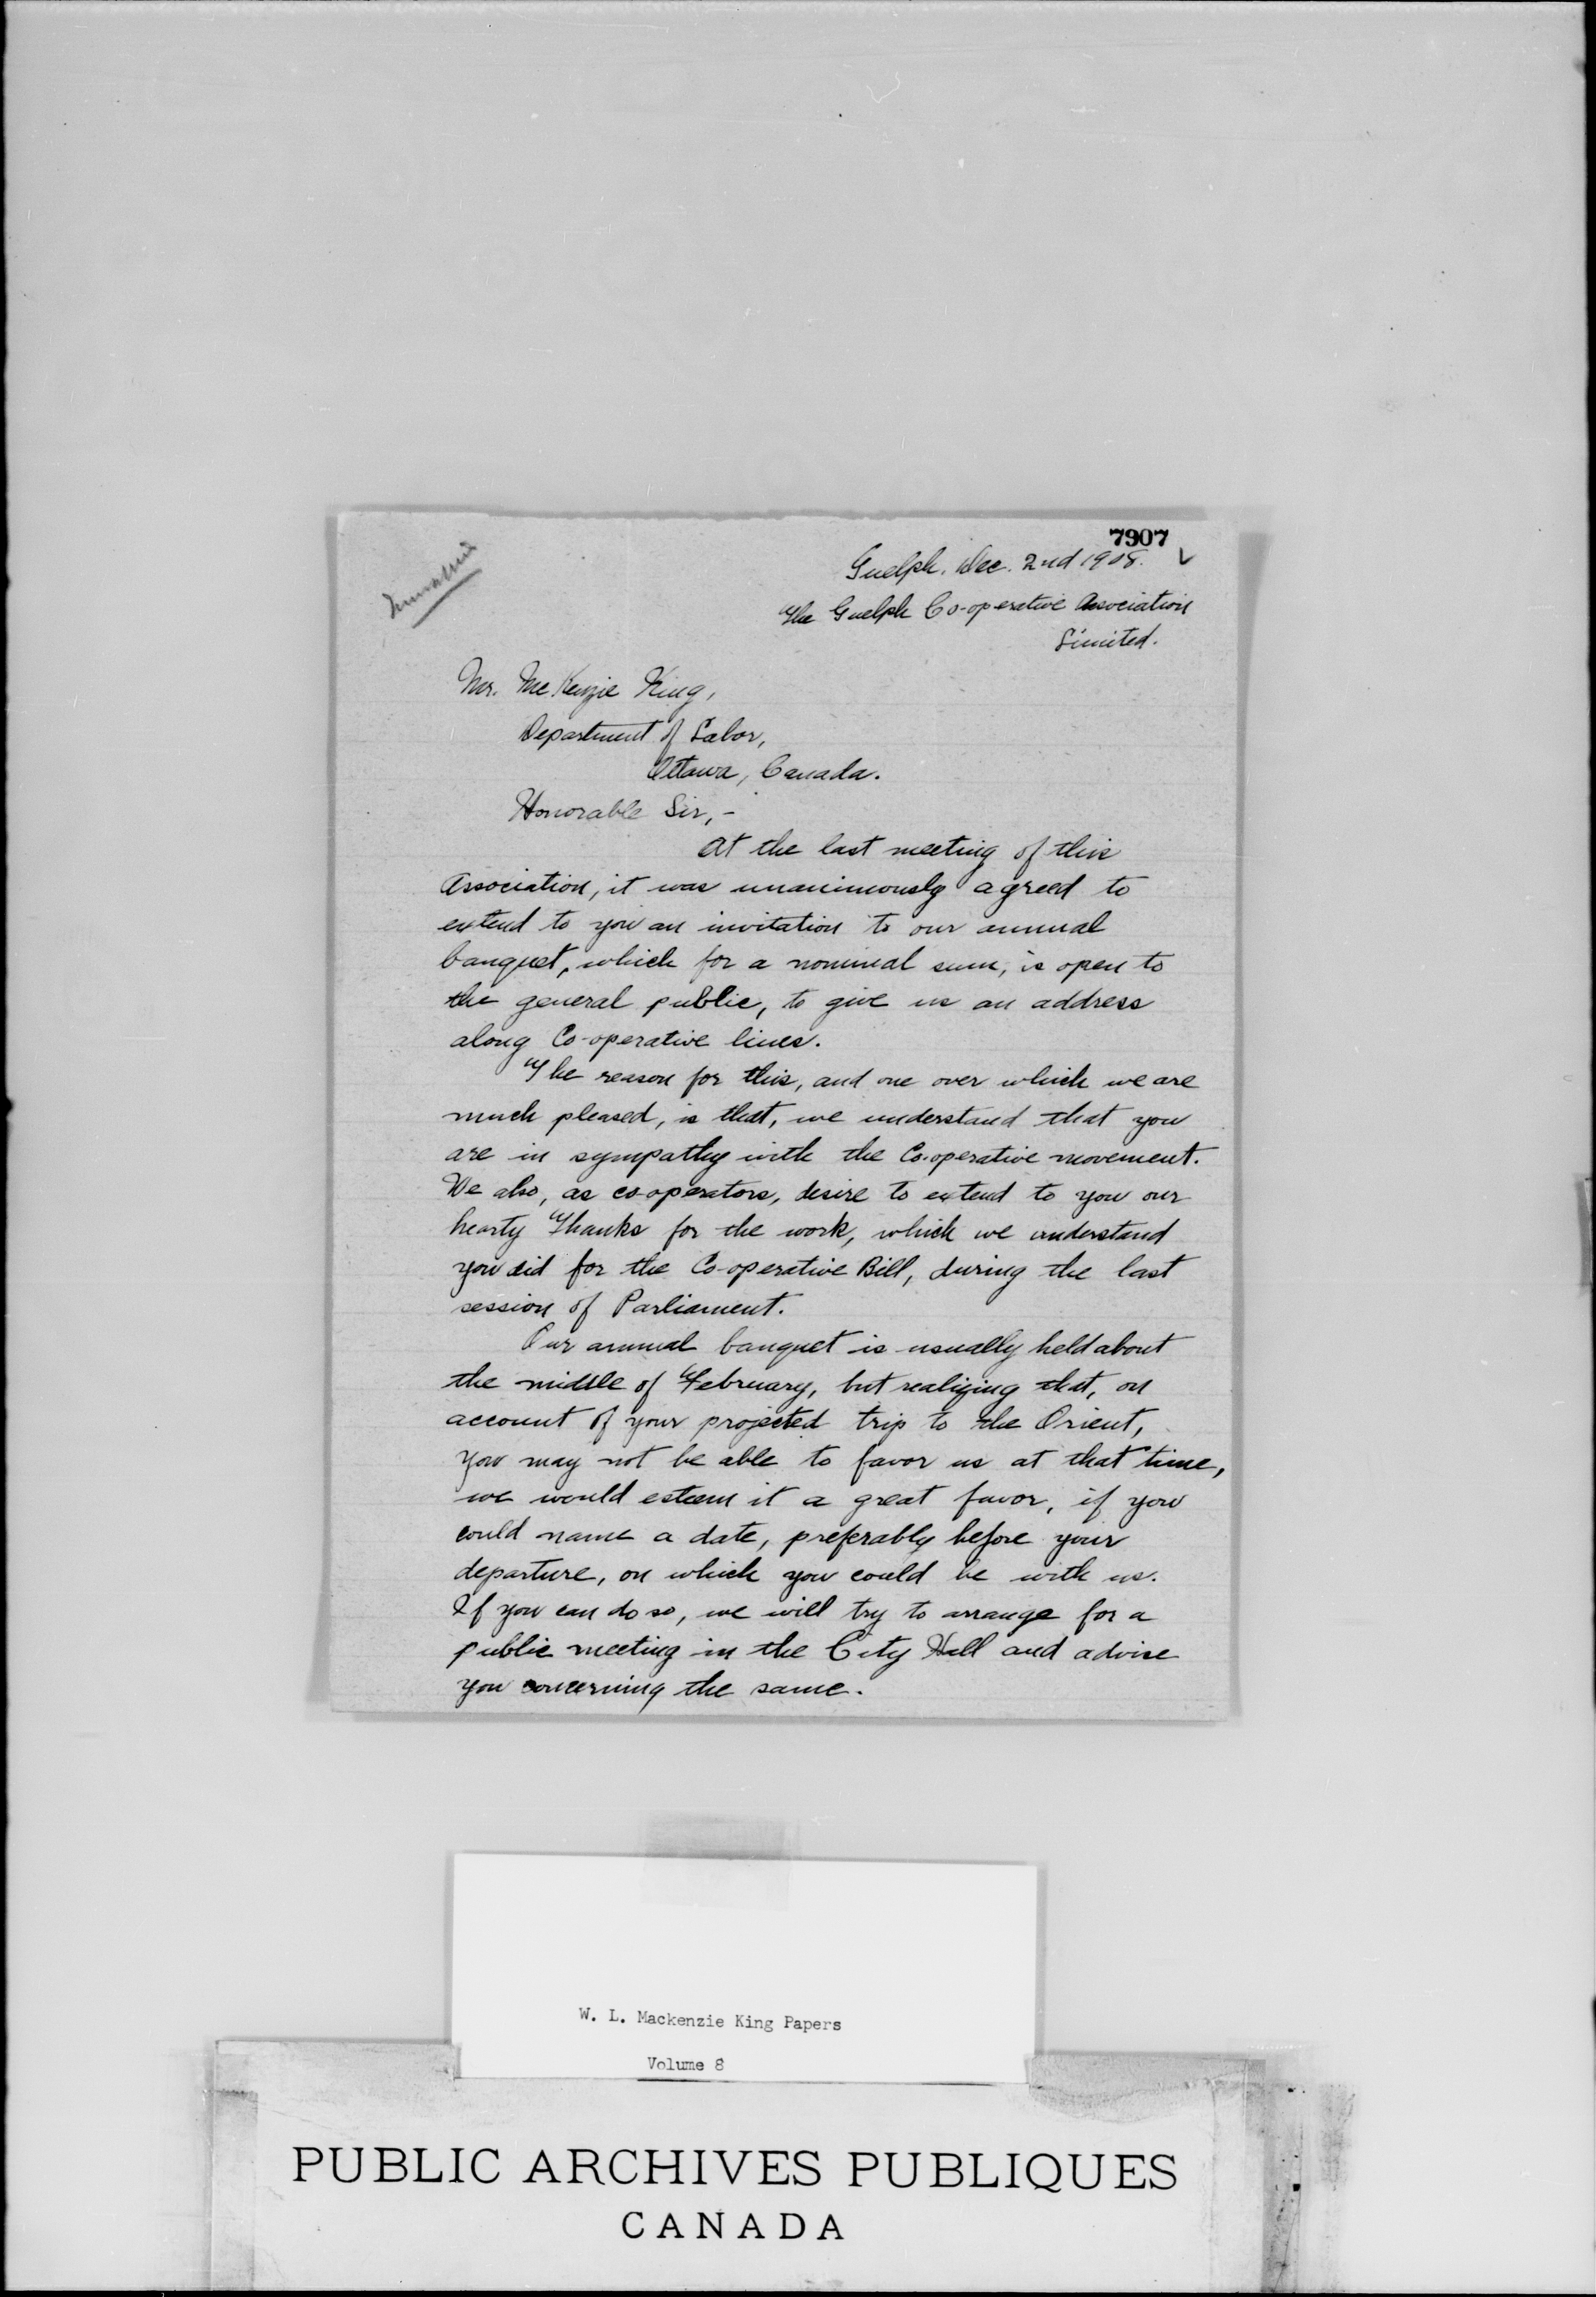 7907
Guelph. Dec. 2nd 1908.
The Guelph Co-operative Association
Limited.
Mr. McKenzie King,
Department of Labor,
Ottawa, Canada.
Honorable Sir,-
At the last meeting of this
Association, it was unanimously agreed to
extend to you an invitation to our annual
banquet, which for a nominal sum, is open to
the general public, to give us an address
along Co-operative lines.
The reason for this, and one over which we are
much pleased, is that, we understand that you
are in sympathy with the Co-operative movement.
We also, as co-operators, desire to extend to you our
hearty Thanks for the work, which we understand
you did for the Co-operative Bill, during the last
session of Parliament.
Our annual banquet is usually held about
the middle of February, but realizing that, on
account of your projected trip to the Orient,
you may not be able to favor us at that time,
we would esteem it a great favor, if you
could name a date, preferably before your
departure, on which you could be with us.
If you can do so, we will try to arrange for a
public meeting in the City Hall and advise
you concerning the same.
W. L. Mackenzie King Papers
Volume 8
PUBLIC ARCHIVES PUBLIQUES
CANADA